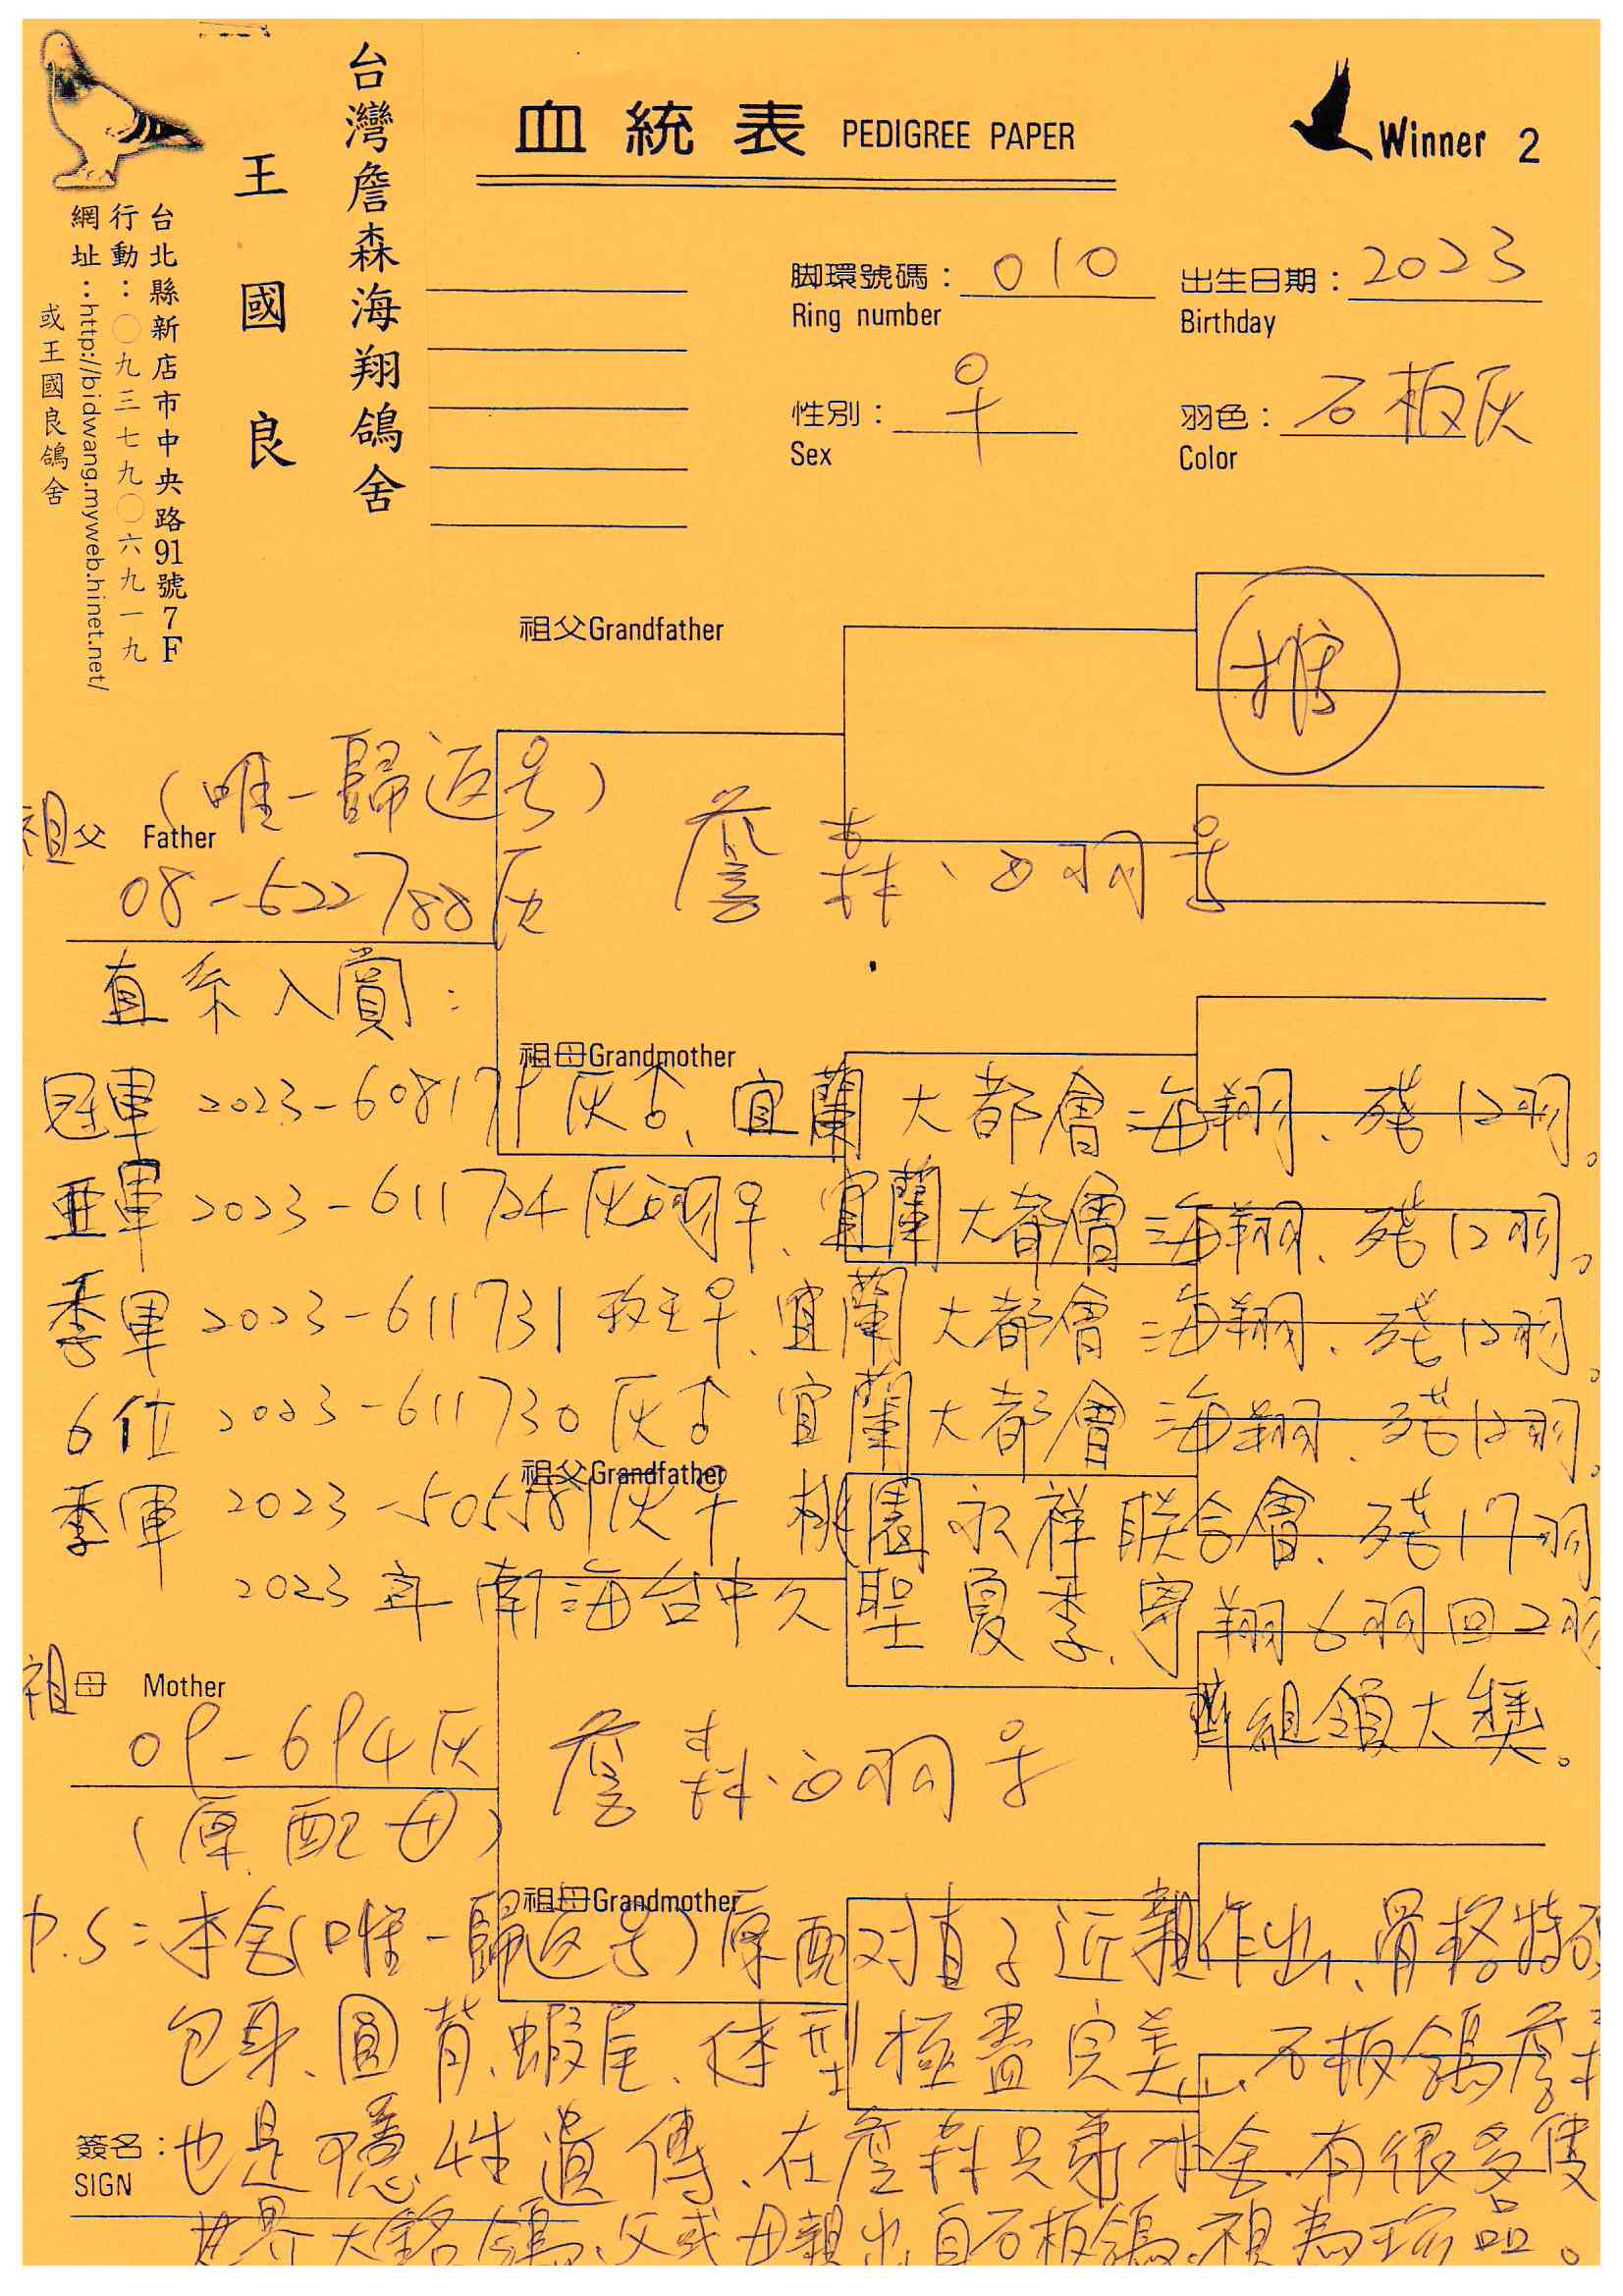 台灣詹森海翔鴿舍
王國良
台北縣新店市中央路91號7F
行動：〇九三七九〇六九一九
網址：http://bidwang.myweb.hinet.net/
或王國良鴿舍
血統表 PEDIGREE PAPER
Winner 2
脚環號碼： 010
Ring number
出生日期： 2023
Birthday
性別： ♀
Sex
羽色： 石板灰
Color
祖父Grandfather
推
（唯一歸返号）
祖父 Father
08-522788灰
詹森、白羽号
直系入賞：
祖母Grandmother
冠軍 2023-608179灰♂、宜蘭大都會海翔、残12羽。
亜軍 2023-611724灰白羽♀、宜蘭大都會海翔、残12羽。
季軍 2023-611731 ♀、宜蘭大都會海翔、残12羽。
6位 2023-611730灰♂ 宜蘭大都會海翔、残12羽。
祖父Grandfather
季軍 2023-505581灰♀ 桃園永祥联合會、残17羽
2023年南海台中久聖夏季、寄翔6羽回2羽
齊組領大獎。
祖母 Mother
09-694灰
詹森、白羽号
（原配母）
祖母Grandmother
P.S：本舍（唯一歸返号）原配对直子近親作出、骨格特硬
包身、圓背、蝦尾、体型極盡完美、石板鴿詹森
也是隱性遺傳、在詹森兄弟本舍、有很多隻
世界大銘鴿、父或母親出自石板鴿、視為珍品。
簽名：
SIGN